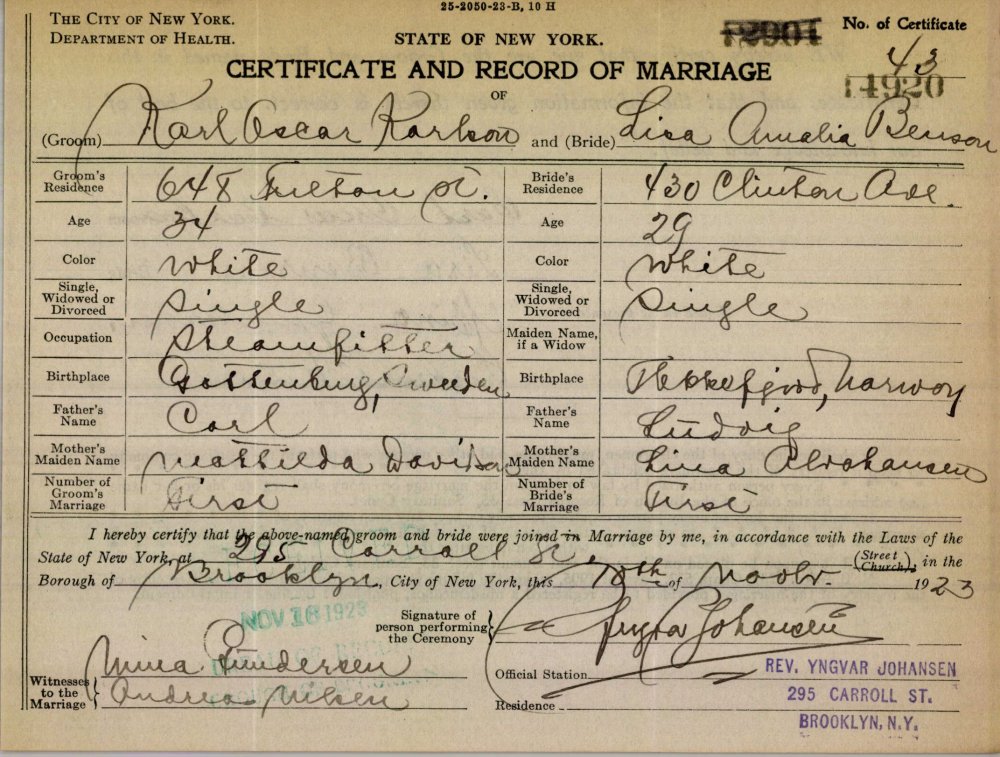 25-2050-23-B, 10 H
THE CITY OF NEW YORK.
DEPARTMENT OF HEALTH.
STATE OF NEW YORK.
No. of Certificate
43
14920
CERTIFICATE AND RECORD OF MARRIAGE
OF
(Groom) Karl Oscar Karlson and (Bride) Lisa Amalia Benson
Groom's Residence 648 Fulton St. Bride's Residence 430 Clinton Ave.
Age 34 Age 29
Color White Color White
Single, Widowed or Divorced Single Single, Widowed or Divorced Single
Occupation Steamfitter Maiden Name, if a Widow
Birthplace Gottenburg, Sweeden Birthplace Flekkefjord, Norway
Father's Name Carl Father's Name Ludvig
Mother's Maiden Name Mathilda Davidson Mother's Maiden Name Lina Abrahansen
Number of Groom's Marriage First Number of Bride's Marriage First
I hereby certify that the above-named groom and bride were joined in Marriage by me, in accordance with the Laws of the
State of New York, at 295 Carroll St. (Street Church), in the
Borough of Brooklyn, City of New York, this 10th of Novbr. 1923
NOV 16 1923
Signature of person performing the Ceremony Yngvar Johansen
Witnesses to the Marriage
Mina Gundersen
Andrea Nilsen
Official Station REV. YNGVAR JOHANSEN
295 CARROLL ST.
Residence
BROOKLYN, N.Y.